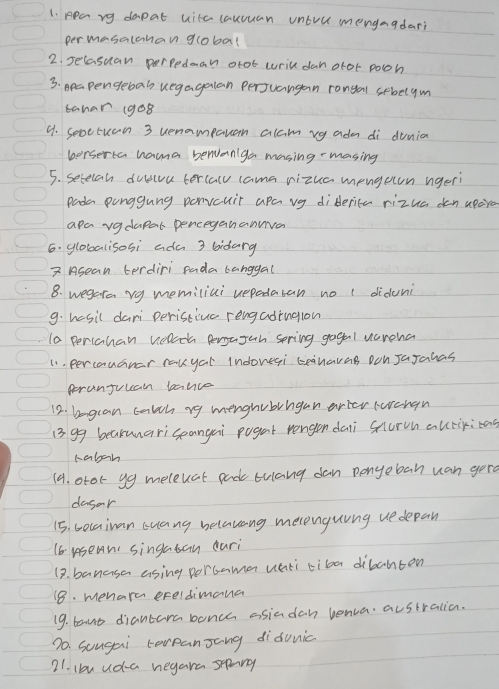 1. Apa yg dapat kita lakukan untuk mengagdari
permasalahan global
2. Jelaskan perpedaan otot lurik dan otot poloh
3. apa pengebab kegagalan Perjuangan rongal sebelym
tahan 1908
4. Sebutkan 3 kenampakan alam yg ada di dunia
berserta nama benuaniga masing-masing
5. Setelah duduk terlalu lama rizka mengalun ngeri
Pada punggung
apa yg di derita rizka dan upaya
apa yg dapat pencegananya
6. globalisosi ada 3 bidang
7 Asean berdiri pada tanggal
8. negara yg memiliki kepadatan no 1 diduni
9. hasil dari peristiwa rengasdengklon
10 perlahan kepada penjajah sering gagal karena
11. rakyat Indonesi
12. bagian tubuh yg menghubungan antar
13 yg
pusat pengendali seluruh aktifitas
tubah
14. otot yg melekat pada tulang dan penyebab
gera
dasar
15. tulang belakang melengkung kedepan
16 singkatan dari
17. bangsa asing pertama kali tiba dibanten
18. menara efeldimana
19. diantara benua asia dan benua australia.
20. sungai terpanjang didunia
21. ibu kota negara